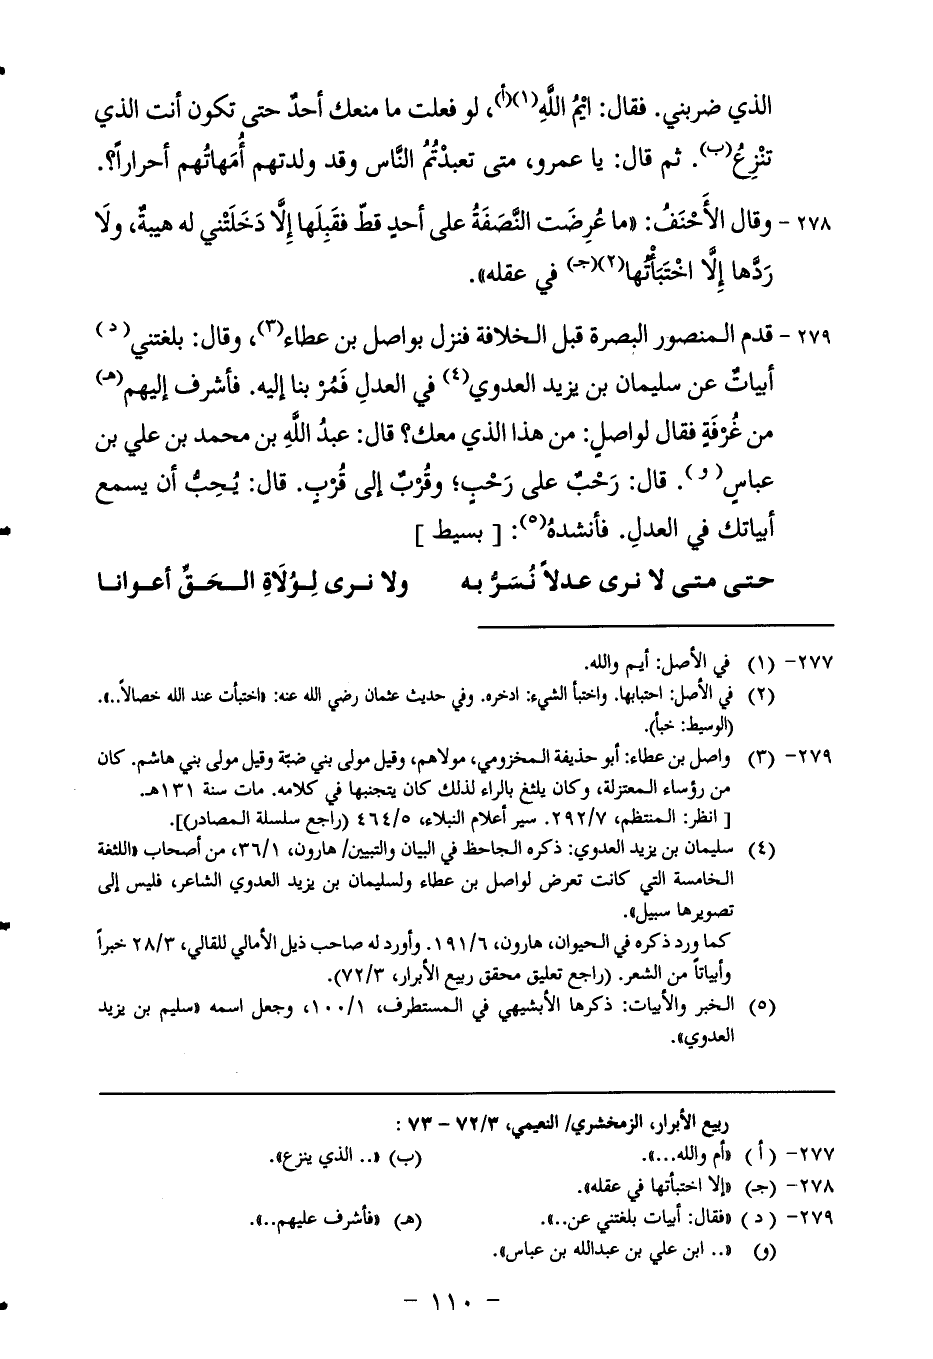 الذي ضربني. فقال: ايْمُ اللَّهِ(١)(أ)، لو فعلت ما منعك أحدٌ حتى تكون أنت الذي
تنْزِعُ(ب). ثم قال: يا عمرو، متى تعبدْتُمُ النَّاس وقد ولدتهم أُمَهاتُهم أحراراً؟.
٢٧٨ - وقال الأَحْنَفُ: «ما عُرِضَت النَّصَفَةُ على أحدٍ قطّ فقَبِلَها إِلَّا دَخَلَتْني له هيبةٌ، ولَا
رَدَّها إِلَّا اخْتَبَأْتُها(٢)(جـ) في عقله».
٢٧٩ - قدم المنصور البصرة قبل الخلافة فنزل بواصل بن عطاء(٣)، وقال: بلغتني(د)
أبياتٌ عن سليمان بن يزيد العدوي(٤) في العدلِ فَمُرْ بنا إليه. فأشرف إليهم(هـ)
من غُرْفَةٍ فقال لواصلٍ: من هذا الذي معك؟ قال: عبدُ اللَّهِ بن محمد بن علي بن
عباسٍ(و). قال: رَحْبٌ على رَحْبٍ؛ وقُرْبٌ إلى قُرْبٍ. قال: يُحِبُّ أن يسمع
أبياتك في العدلِ. فأنشدهُ(٥): [ بسيط ]
حتى متى لا نرى عدلاً نُسَرُّ به ولا نرى لِوُلَاةِ الحَقِّ أعوانا
٢٧٧- (١) في الأصل: أيم والله.
(٢) في الأصل: احتبابها. واختبأ الشيء: ادخره. وفي حديث عثمان رضي الله عنه: «اختبأت عند الله خصالاً..».
(الوسيط: خبأ).
٢٧٩- (٣) واصل بن عطاء: أبو حذيفة المخزومي، مولاهم، وقيل مولى بني ضبّة وقيل مولى بني هاشم. كان
من رؤساء المعتزلة، وكان يلثغ بالراء لذلك كان يتجنبها في كلامه. مات سنة ١٣١هـ.
[ انظر: المنتظم، ٢٩٢/٧. سير أعلام النبلاء، ٤٦٤/٥ (راجع سلسلة المصادر)].
(٤) سليمان بن يزيد العدوي: ذكره الجاحظ في البيان والتبيين/ هارون، ٣٦/١، من أصحاب «اللثغة
الخامسة التي كانت تعرض لواصل بن عطاء ولسليمان بن يزيد العدوي الشاعر، فليس إلى
تصويرها سبيل».
كما ورد ذكره في الحيوان، هارون، ١٩١/٦. وأورد له صاحب ذيل الأمالي للقالي، ٢٨/٣ خبراً
وأبياتاً من الشعر. (راجع تعليق محقق ربيع الأبرار، ٧٢/٣).
(٥) الخبر والأبيات: ذكرها الأبشيهي في المستطرف، ١٠٠/١، وجعل اسمه «سليم بن يزيد
العدوي».
ربيع الأبرار، الزمخشري/ النعيمي، ٧٢/٣ - ٧٣ :
٢٧٧- (أ) «أم والله...». (ب) «.. الذي ينزع».
٢٧٨- (جـ) «إلا اختبأتها في عقله».
٢٧٩- (د) «فقال: أبيات بلغتني عن..». (هـ) «فأشرف عليهم..».
(و) «.. ابن علي بن عبدالله بن عباس».
- ١١٠ -